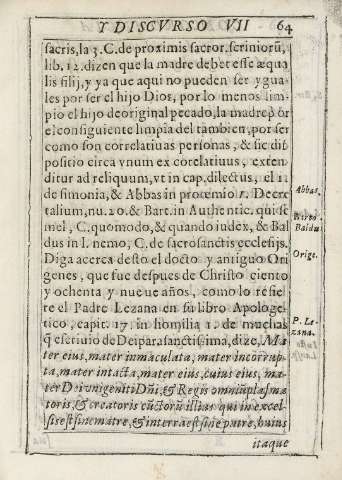 Y DISCVRSO VII 64
sacris, la 3. C. de proximis sacror. scriniorũ,
lib. 12. dizen que la madre debet esse æqua
lis filij, y ya que aqui no pueden ser ygua-
les por ser el hijo Dios, por lo menos lim-
pio el hijo de original pecado, la madre por
el consiguiente limpia del tambien, por ser
como son correlatiuas personas, & sic dis
positio circa vnum ex corelatiuis, exten-
ditur ad reliquum, vt in cap. dilectus, el 11.
de simonia, & Abbas in proœmio 1. Decre
talium, nu. 20. & Bart. in Authentic. qui se
mel, C. quomodo, & quando iudex, & Bal
dus in l. nemo, C. de sacrosanctis ecclesijs.
Diga acerca desto el docto y antiguo Ori
genes, que fue despues de Christo ciento
y ochenta y nueue años, como lo refie
re el Padre Lezana en su libro Apologe-
tico, capit. 17. in homilia 1. de muchas
q̃ escriuio de Deipara sanctissima, dize, Ma
ter eius, mater inmaculata, mater incorrup-
ta, mater intacta, mater eius, cuius eius, ma-
ter Dei vnigeniti Dñi, & Regis omniũ plasma
toris, & creatoris cũctorũ illius qui in excel-
sis est sine matre, & in terra est sine patre, huius
itaque
Abbas.
Baldu
Orige.
P. Le-
zana.